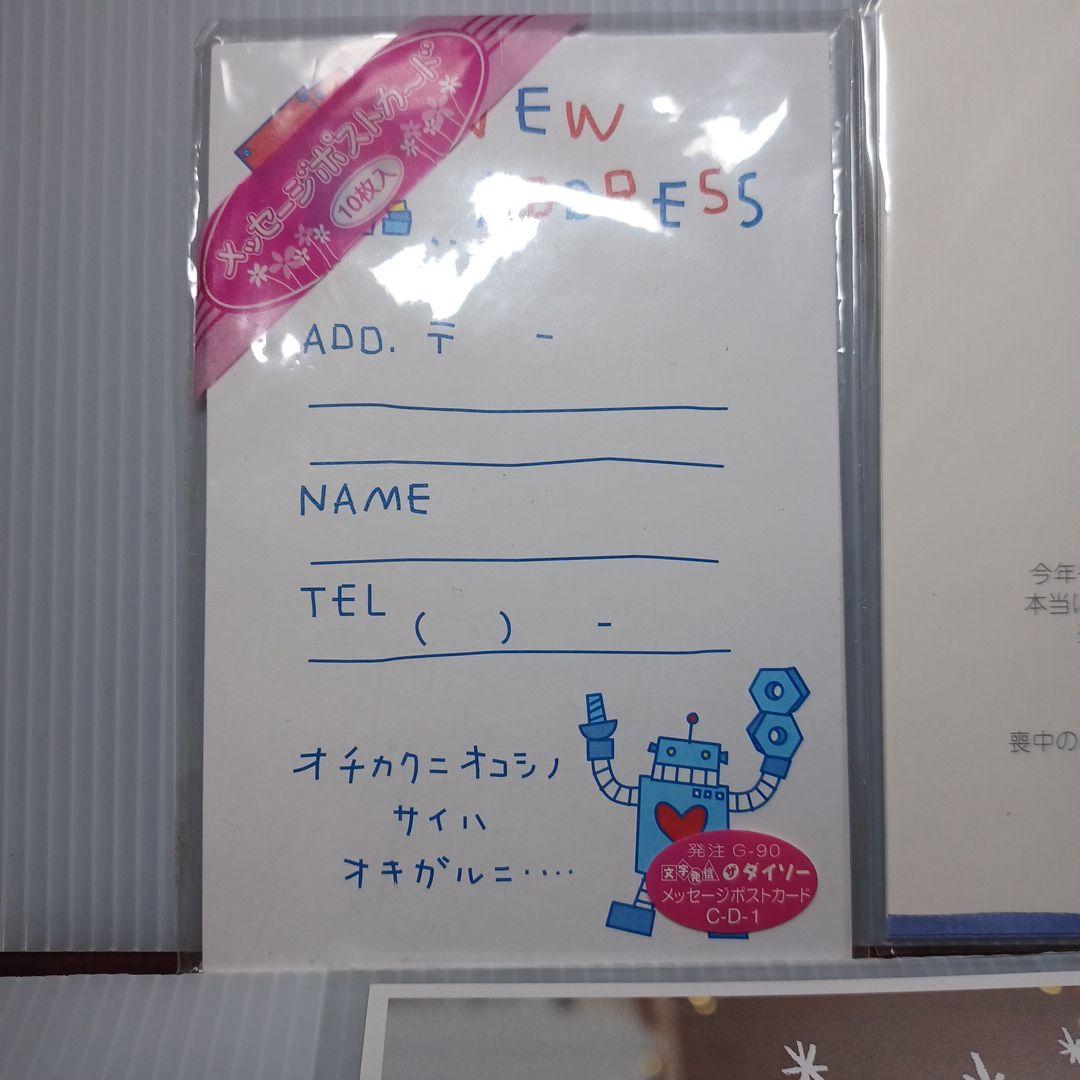 メッセージポストカード
10枚入
NEW
ADDRESS
ADD. 〒 -
NAME
TEL
( ) -
オチカクニオコシノ
サイハ
オキガルニ‥‥
発注 G-90
文字発信 ザ・ダイソー
メッセージポストカード
C-D-1
今年
本当は
喪中の